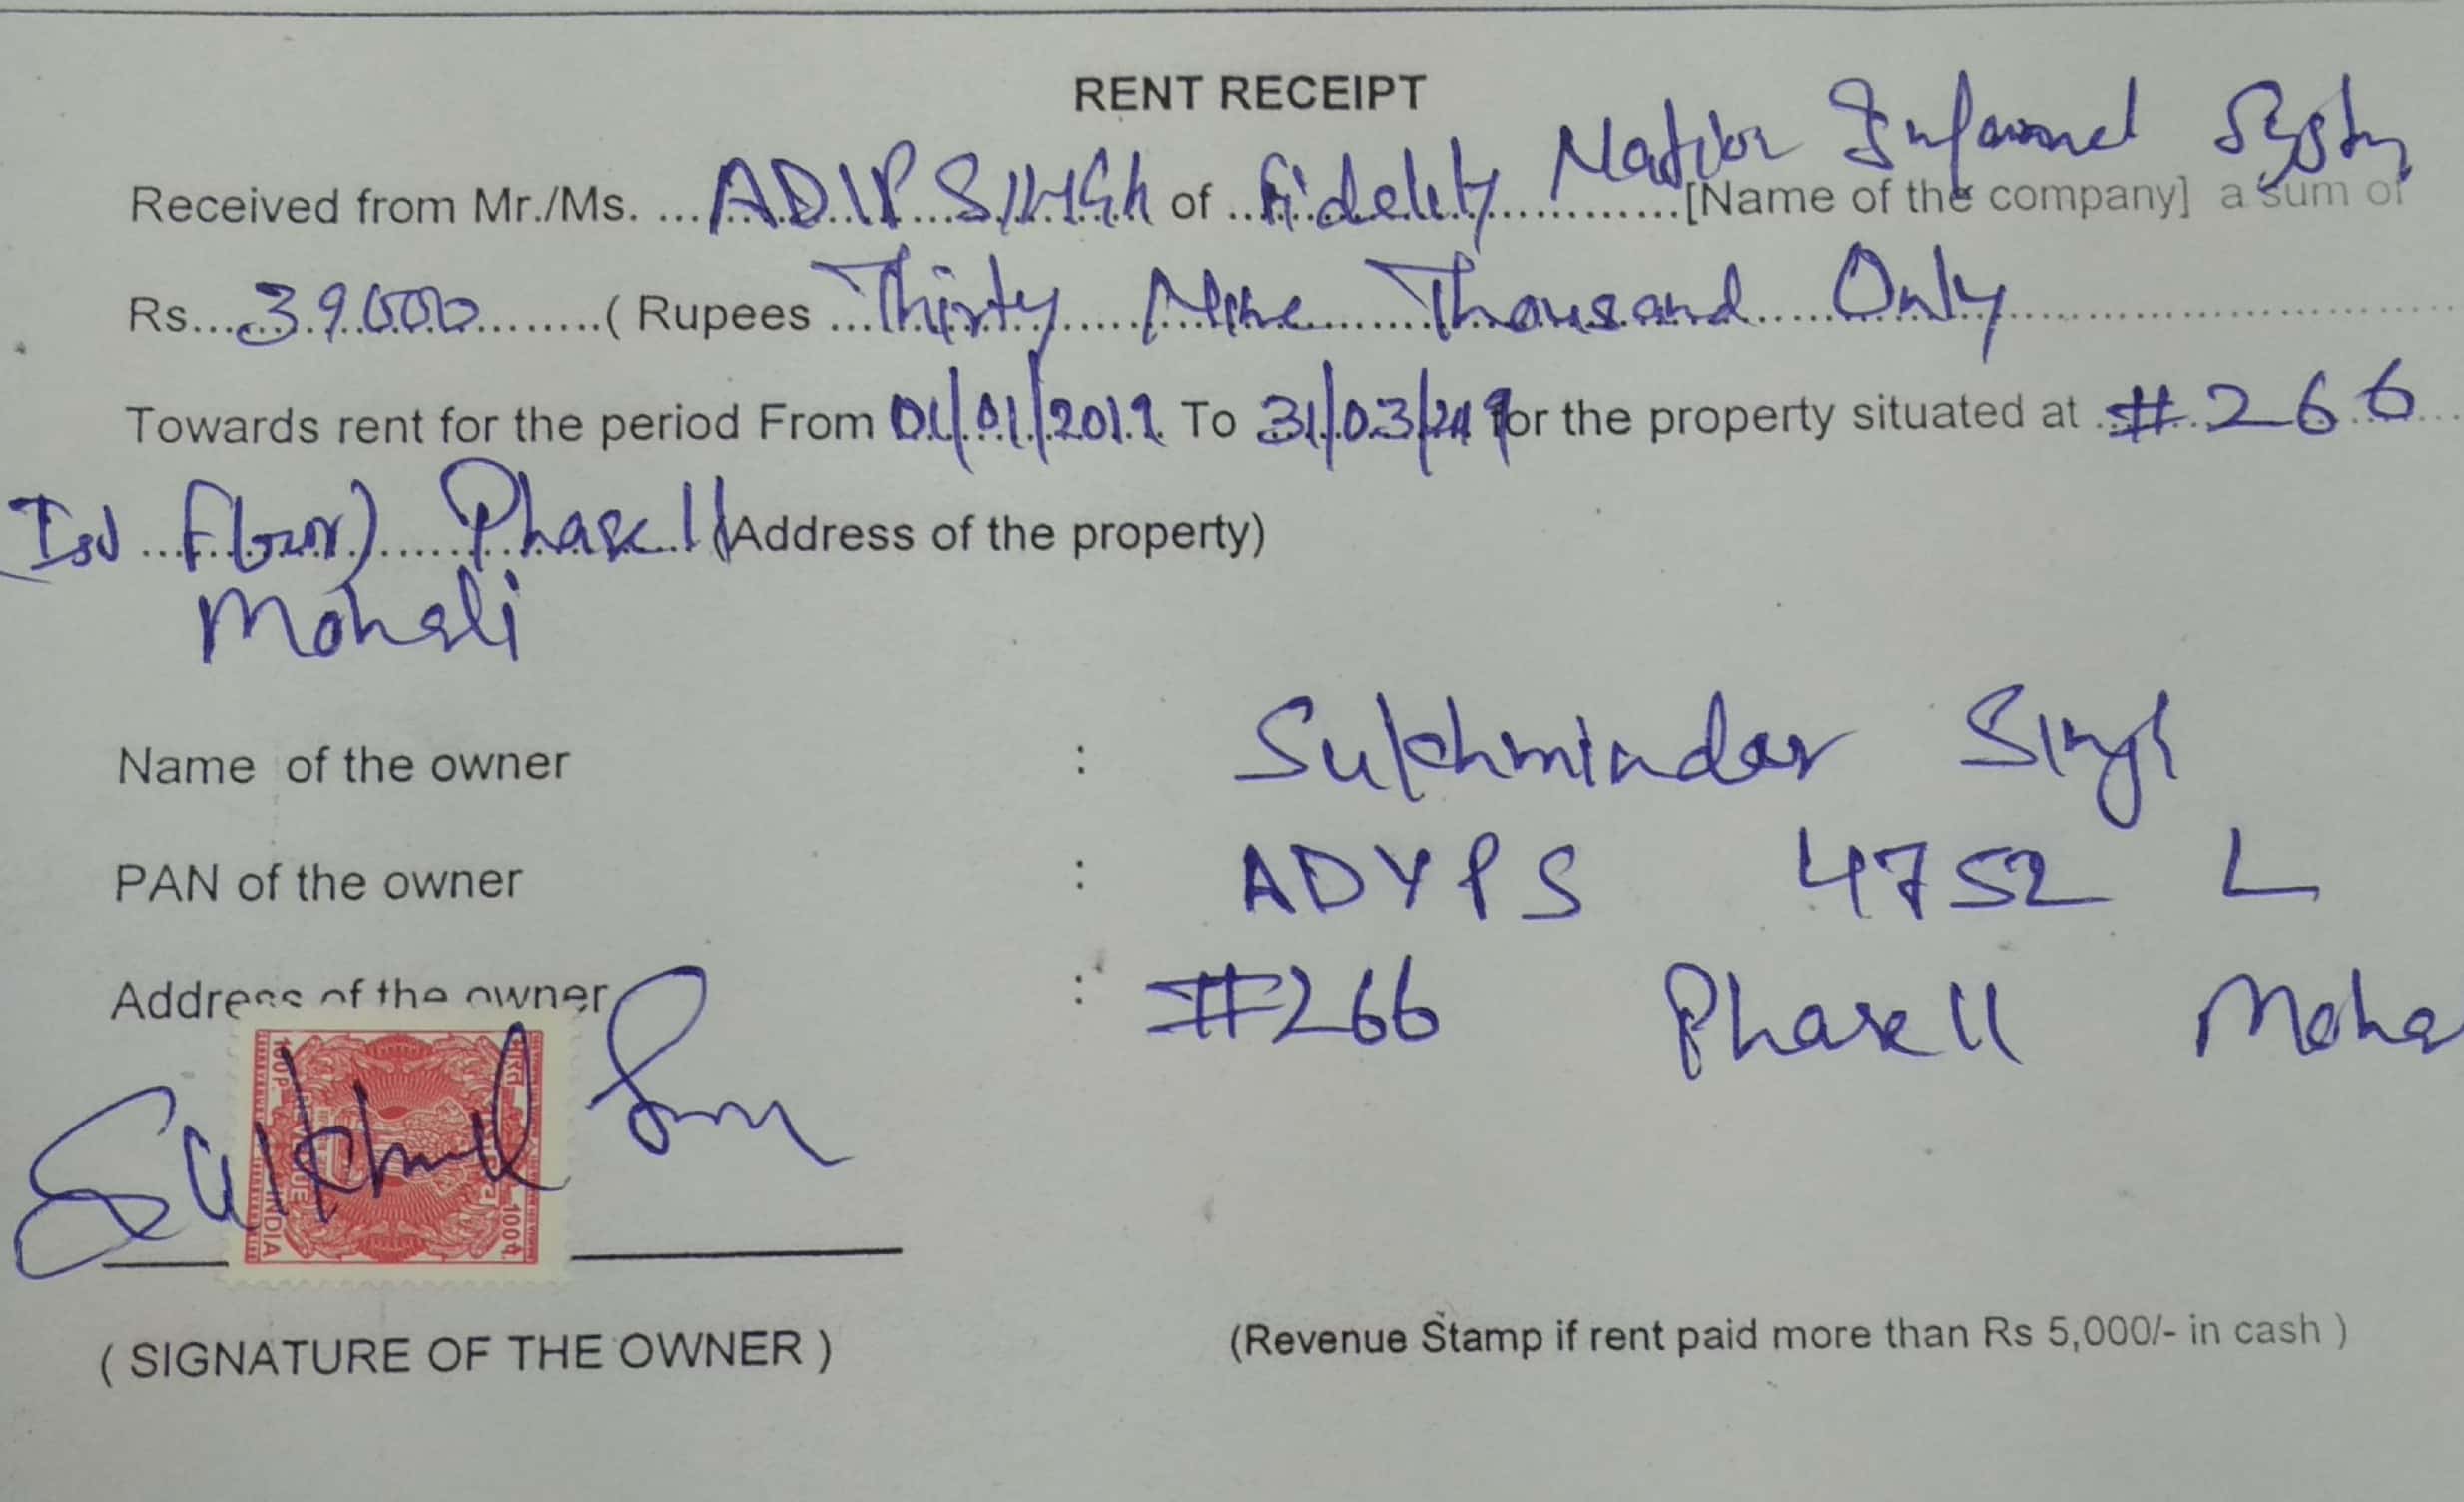 RENT RECEIPT
Received from Mr./Ms. ... ADIP SINGH of .. Fidelity Nation Informel System ............[Name of the company] a sum of
Rs... 39000 ........( Rupees ... Thirty Nine Thousand Only
Towards rent for the period From 01/01/2019 To 31/03/2019 for the property situated at # 266
Ist Floor) Phase 11 (Address of the property)
Mohali
Name of the owner : Sukhminder Singh
PAN of the owner : ADYPS 4752 L
Address of the owner : #266 Phase 11 Moha
100P. REVENUE INDIA
( SIGNATURE OF THE OWNER )
(Revenue Stamp if rent paid more than Rs 5,000/- in cash )